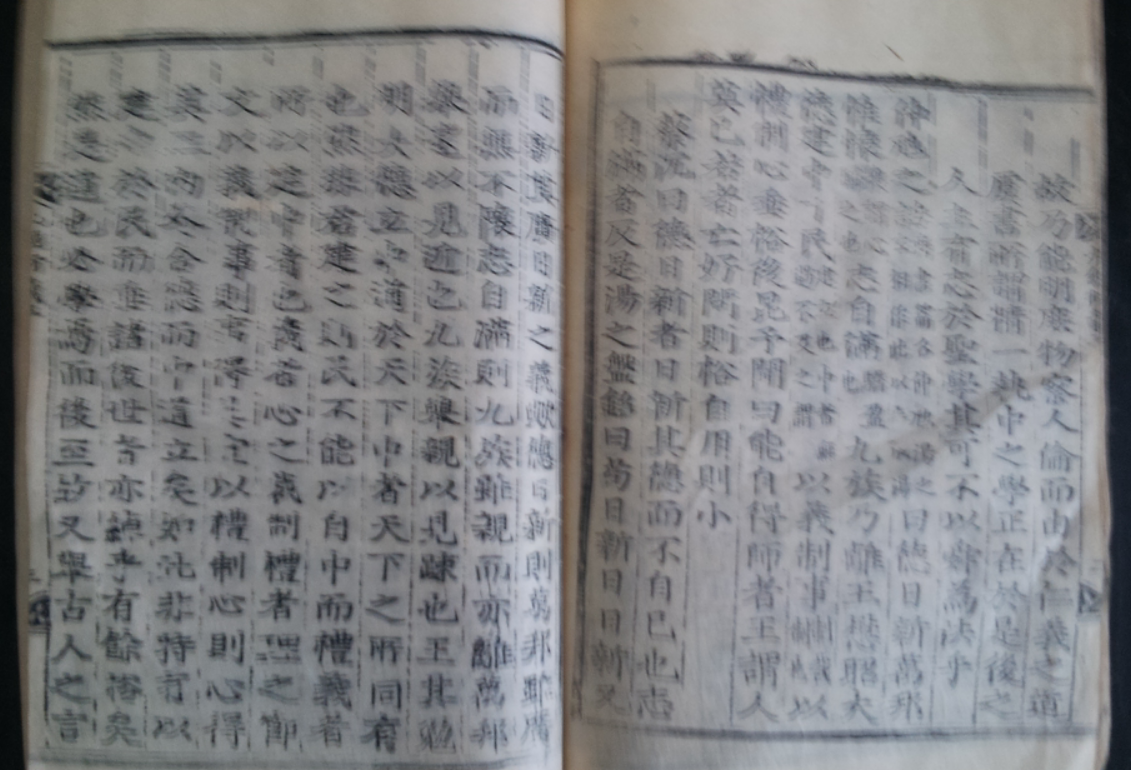 故乃能明庶物察人倫而由於仁義之道
虞書所謂精一執中之學正在於是後之
人主有志於聖學其可不以舜為法乎
仲虺之誥曰德日新萬邦
惟懷志自滿九族乃離王懋昭大
德建中于民以義制事以
禮制心垂裕後昆予聞曰能自得師者王謂人
莫已若者亡好問則裕自用則小
蔡沈曰德日新者日新其德而不自已也志
自滿者反是湯之盤銘曰苟日新日日新又
日新其廣日新之義歟德日新則萬邦雖廣
而無不懷志自滿則九族雖親而亦離萬邦
舉遠以見近也九族舉親以見疎也王其勉
明大德立中道於天下中者天下之所同有
也然非君建之則民不能以自中而禮義者
所以建中者也義者心之裁制禮者理之節
文以義制事則事得其宜以禮制心則心得
其正內外合德而中道立矣如此非特有以
建中於民而垂諸後世者亦綽乎有餘裕矣
然是道也必學焉而後至故又舉古人之言